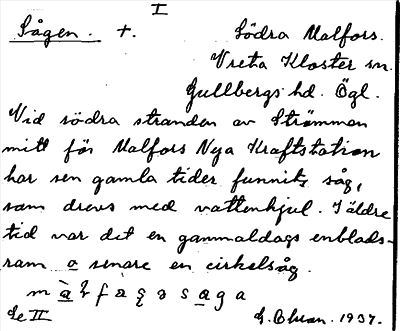 I
Sågen. +. Södra Malfors.
Vreta Kloster sn.
Gullbergs hd. Ögl.
Vid södra stranden av Strömmen
mitt för Malfors Nya Kraftstation
har sen gamla tider funnits såg,
som drevs med vattenhjul. I äldre
tid var det en gammaldags enblads-
ram o senare en cirkelsåg.
Se II G. Olsson. 1937.